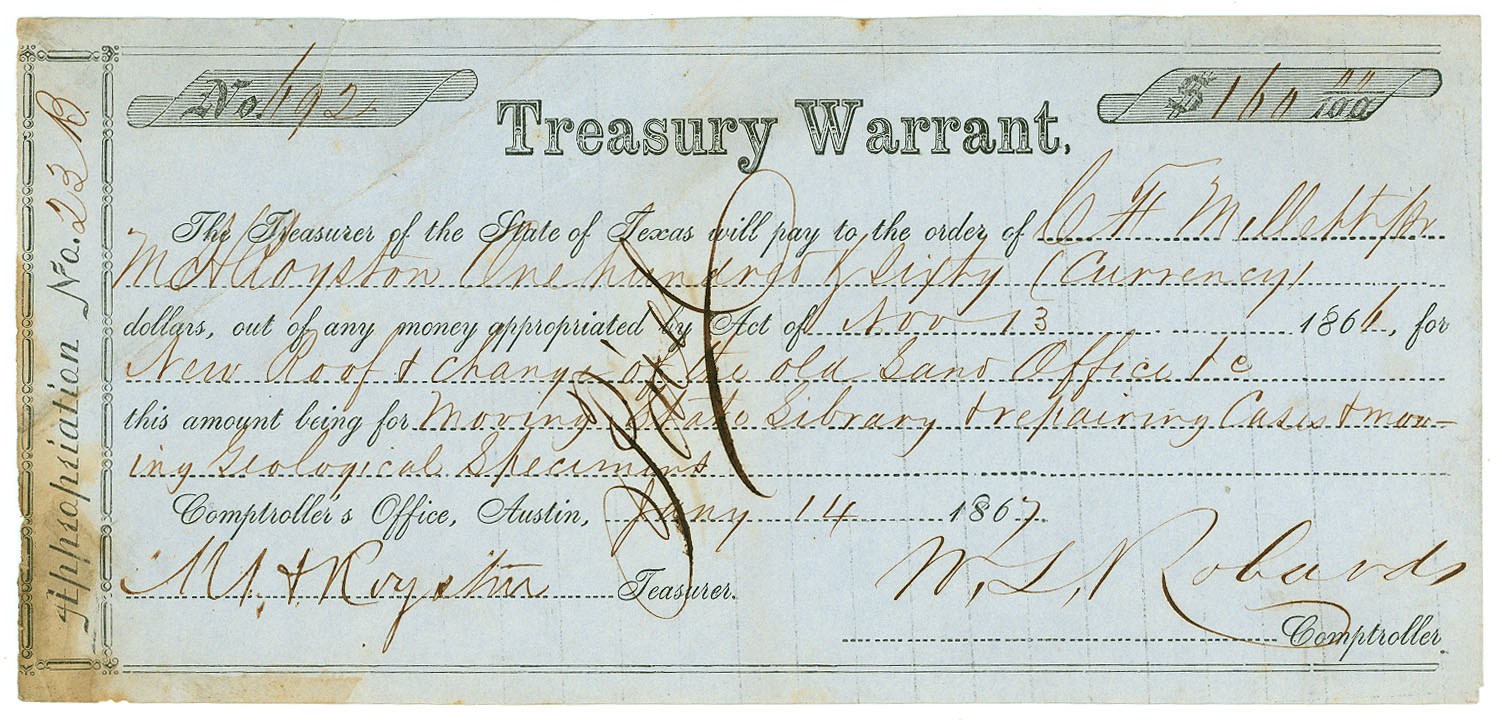 Appropriation No. 23 B.
No. 692
$ 160 00/100
Treasury Warrant,
The Treasurer of the State of Texas will pay to the order of C F Millett pr
M H Royston One hundred & Sixty (Currency)
dollars, out of any money appropriated by Act of Nov 13 1866, for
New Roof & change of the old Land Office &c
this amount being for Moving State Library & repairing Cases & mov-
ing Geological Specimens
Comptroller's Office, Austin, Jany 14 1867.
M. H Royston Teasurer.
W. L. Robards
Comptroller.
Paid